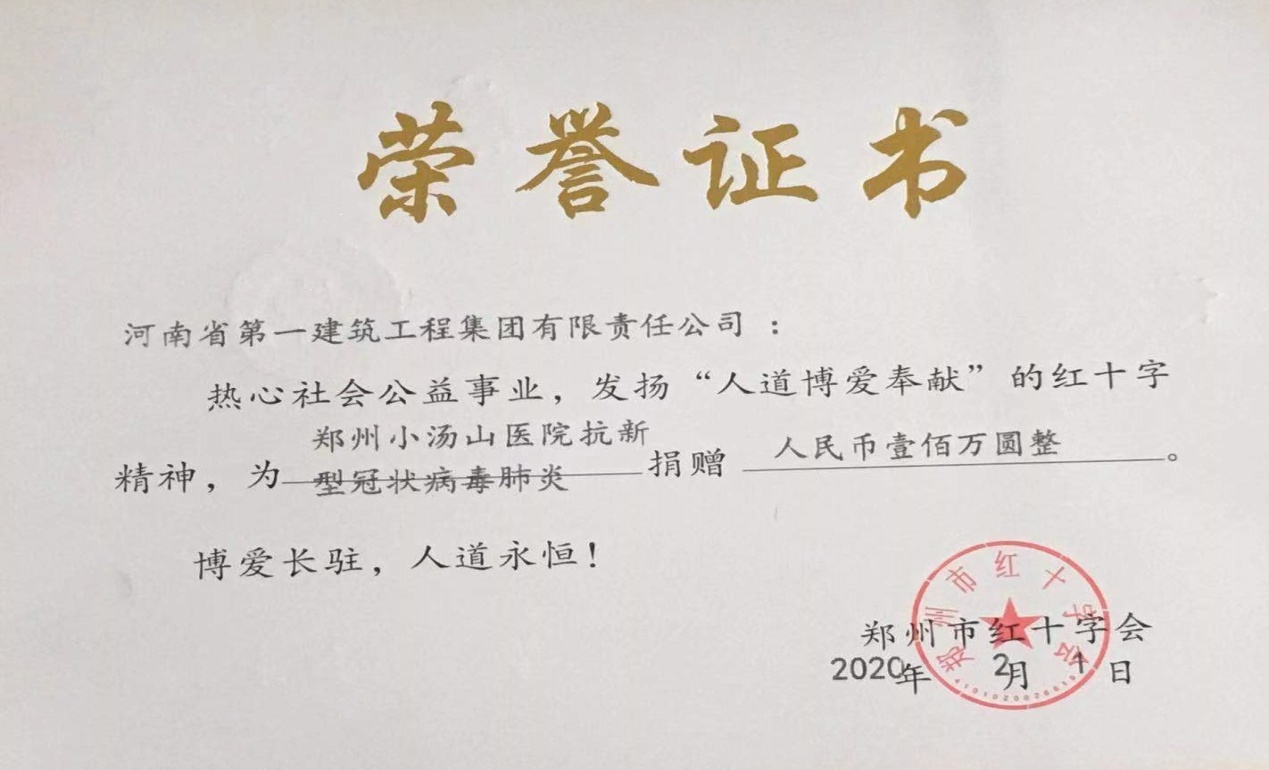 荣誉证书
河南省第一建筑工程集团有限责任公司：
热心社会公益事业，发扬“人道博爱奉献”的红十字
郑州小汤山医院抗新
精神，为型冠状病毒肺炎捐赠人民币壹佰万圆整。
博爱长驻，人道永恒！
郑州市红十字会
2020年2月1日
郑州市红十字会